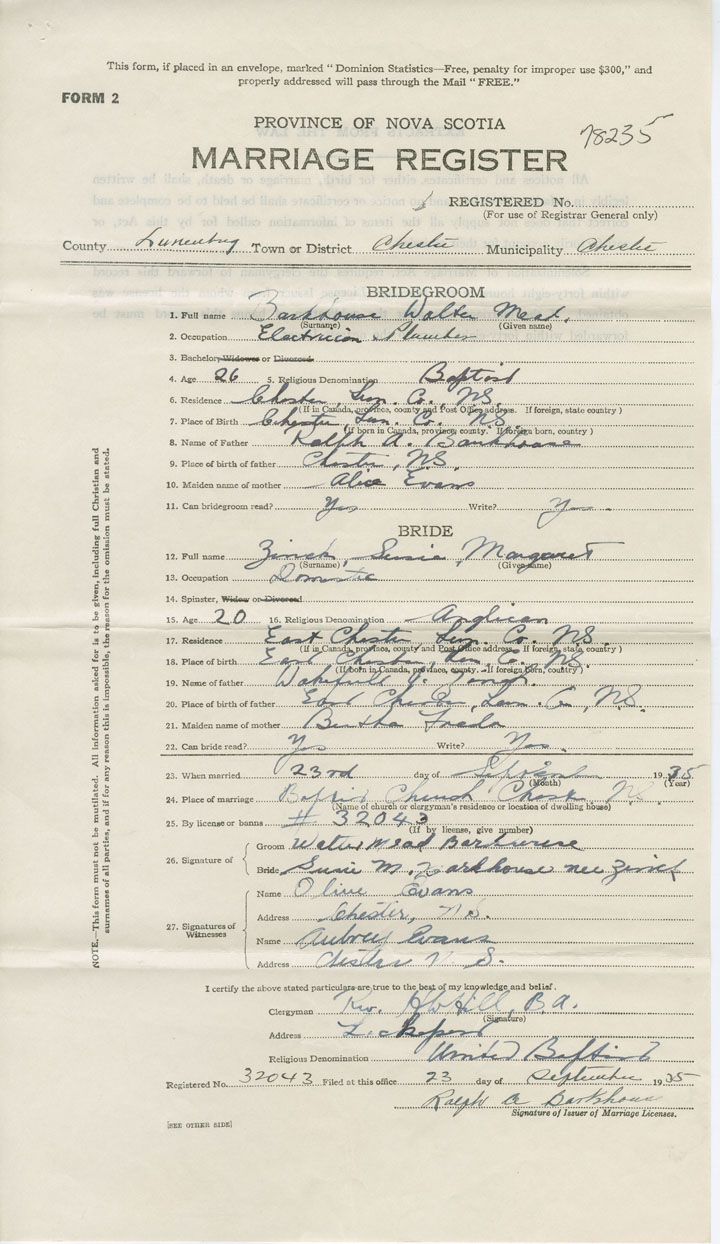 This form, if placed in an envelope, marked "Dominion Statistics—Free, penalty for improper use $300," and
properly addressed will pass through the Mail "FREE."
FORM 2
PROVINCE OF NOVA SCOTIA
78235
MARRIAGE REGISTER
REGISTERED No.
(For use of Registrar General only)
County Lunenburg Town or District Chester Municipality Chester
BRIDEGROOM
1. Full name Barkhouse Walter Mead,
(Surname) (Given name)
2. Occupation Electrician Plumber
3. Bachelor, Widower or Divorced
4. Age 26 5. Religious Denomination Baptist
6. Residence Chester, Lun. Co. N.S.
(If in Canada, province, county and Post Office address. If foreign, state country)
7. Place of Birth Chester, Lun. Co. N.S.
(If born in Canada, province, county. If foreign born, country)
8. Name of Father Ralph A. Barkhouse
9. Place of birth of father Chester, N.S.
10. Maiden name of mother Alice Evans
11. Can bridegroom read? Yes Write? Yes
BRIDE
12. Full name Zinck, Susie Margaret
(Surname) (Given name)
13. Occupation Domestic
14. Spinster, Widow or Divorced
15. Age 20 16. Religious Denomination Anglican
17. Residence East Chester, Lun. Co. N.S.
(If in Canada, province, county and Post Office address. If foreign, state country)
18. Place of birth East Chester, Lun. Co. N.S.
(If born in Canada, province, county. If foreign born, country)
19. Name of father Wakefield
20. Place of birth of father East Chester, Lun. Co., N.S.
21. Maiden name of mother Bertha
22. Can bride read? Yes Write? Yes.
23. When married 23rd day of September 1935
(Month) (Year)
24. Place of marriage Baptist Church Chester N.S.
(Name of church or clergyman's residence or location of dwelling house)
25. By license or banns # 32043
(If by license, give number)
26. Signature of
Groom Walter Mead Barkhouse
Bride Susie M. Barkhouse nee Zinck
27. Signatures of Witnesses
Name Olive Evans
Address Chester, N.S.
Name Aubrey Evans
Address Chester N.S.
I certify the above stated particulars are true to the best of my knowledge and belief.
Clergyman Rev. Hill, B.A.
(Signature)
Address Lockeport
Religious Denomination United Baptist
Registered No. 32043 Filed at this office 23 day of September 1935
Ralph A Barkhouse
Signature of Issuer of Marriage Licenses.
[SEE OTHER SIDE]
NOTE.—This form must not be mutilated. All information asked for is to be given, including full Christian and
surnames of all parties, and if for any reason this is impossible, the reason for the omission must be stated.